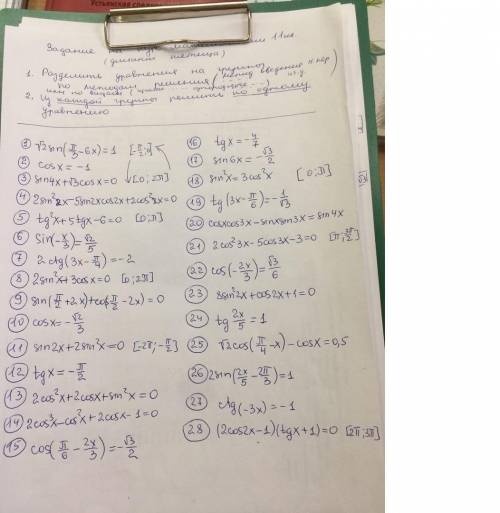 Задание
11
1. Разделить уравнения на группы
по методам решения (метод введения
2. Из каждой группы решить по одному
уравнению
① √2 sin(π/3 - 6x) = 1
② cosx = -1
③ sin4x + √3 cosx = 0 [0; 2π]
④ 2sin²2x - 5sin2xcos2x + 2cos²2x = 0
⑤ tg²x + 5tgx - 6 = 0 [0; π]
⑥ sin(-x/3) = √2/5
⑦ 2ctg(3x - π/4) = -2
⑧ 2sin²x + 3cosx = 0 [0; 2π]
⑨ sin(π/2 + 2x) + cos(π/2 - 2x) = 0
⑩ cosx = -√2/3
⑪ sin2x + 2sin²x = 0 [-2π; -π/2]
⑫ tgx = -π/2
⑬ 2cos²x + 2cosx + sin²x = 0
⑭ 2cos³x - cos²x + 2cosx - 1 = 0
⑮ cos(π/6 - 2x/3) = -√3/2
⑯ tgx = -4/7
⑰ sin6x = -√3/2
⑱ sin²x = 3cos²x [0; π]
⑲ tg(3x - π/6) = -1/√3
⑳ cosxcos3x - sinxsin3x = sin4x
21 2cos²3x - 5cos3x - 3 = 0 [π; 3π/2]
22 cos(-2x/3) = √3/6
23 8sin²2x + cos2x + 1 = 0
24 tg 2x/5 = 1
25 √2cos(π/4 - x) - cosx = 0,5
26 2sin(2x/5 - 2π/3) = 1
27 ctg(-3x) = -1
28 (2cos2x - 1)(tgx + 1) = 0 [2π; 3π]